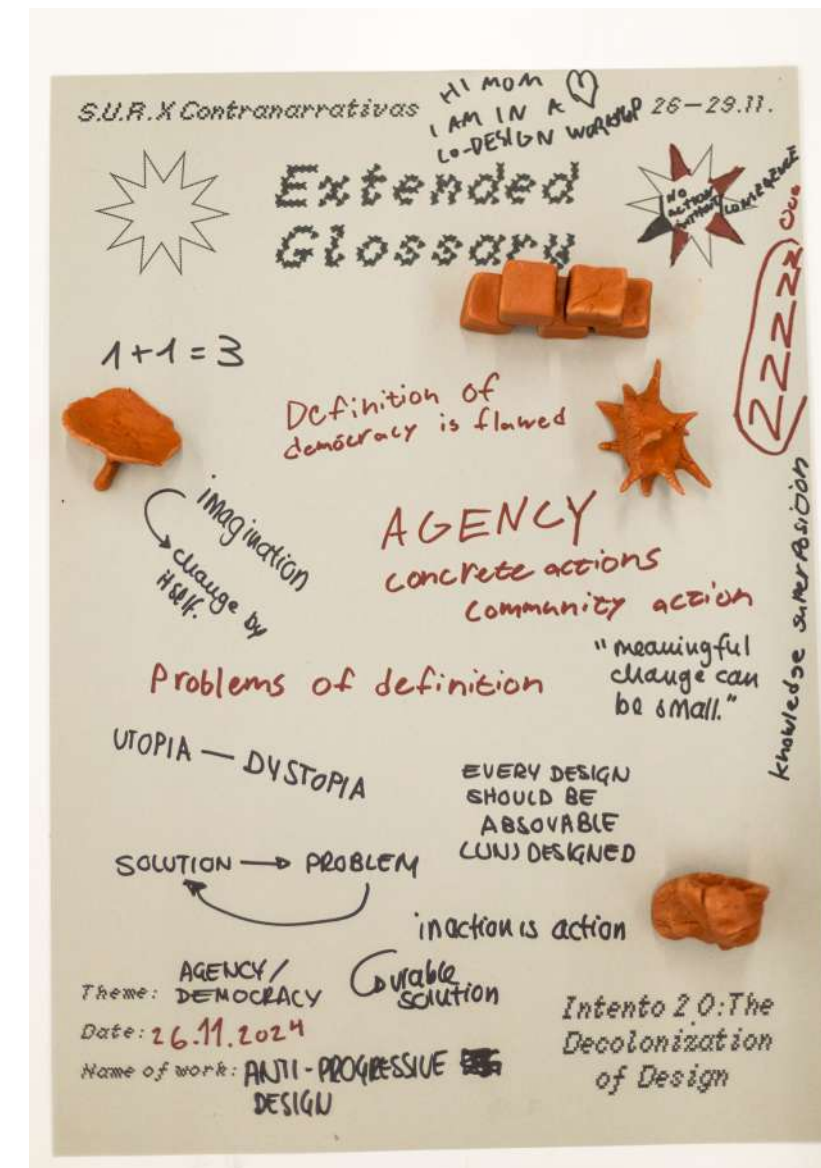 S.U.R.X Contranarrativas
HI MOM
I AM IN A
CO-DESIGN WORKSHOP
26—29.11.
Extended
Glossary
NO
ACTION
WITHOUT
CONSEQUENCE
1+1=3
Definition of
democracy is flawed
imagination
change by
itself.
AGENCY
concrete actions
community action
"meaningful
change can
be small."
knowledge superposition
Problems of definition
UTOPIA — DYSTOPIA
EVERY DESIGN
SHOULD BE
ABSOVABLE
(UN) DESIGNED
SOLUTION → PROBLEM
inaction is action
durable
solution
Theme: AGENCY/
DEMOCRACY
Date: 26.11.2024
Name of work: ANTI-PROGRESSIVE
DESIGN
Intento 2.0:The
Decolonization
of Design